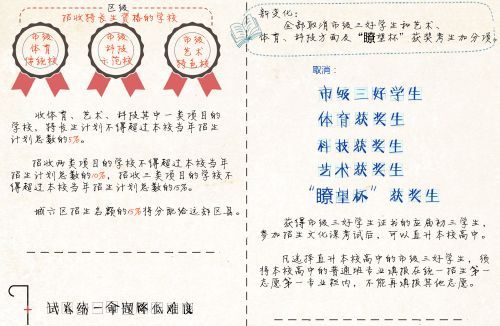 区级
招收特长生资格的学校
市级
体育
传统校
市级
科技
示范校
市级
艺术
特色校
收体育、艺术、科技其中一类项目的
学校,特长生计划不得超过本校当年招生
计划总数的5%。
招收两类项目的学校不得超过本校当年
招生计划总数的10%,招收三类项目的学校不
得超过本校当年招生计划总数的15%。
城六区招生总额的15%将分配给远郊区县。
试卷统一命题降低难度
新变化:
全部取消市级三好学生和艺术、
体育、科技方面及“瞭望杯”获奖考生加分项。
取消:
市级三好学生
体育获奖生
科技获奖生
艺术获奖生
“瞭望杯”获奖生
获得市级三好学生证书的应届初三学生,
参加招生文化课考试后,可以直升本校高中。
凡选择直升本校高中的市级三好学生,须
将本校高中的普通班专业填报在统一招生第一
志愿第一专业栏内,不能再填报其他志愿。